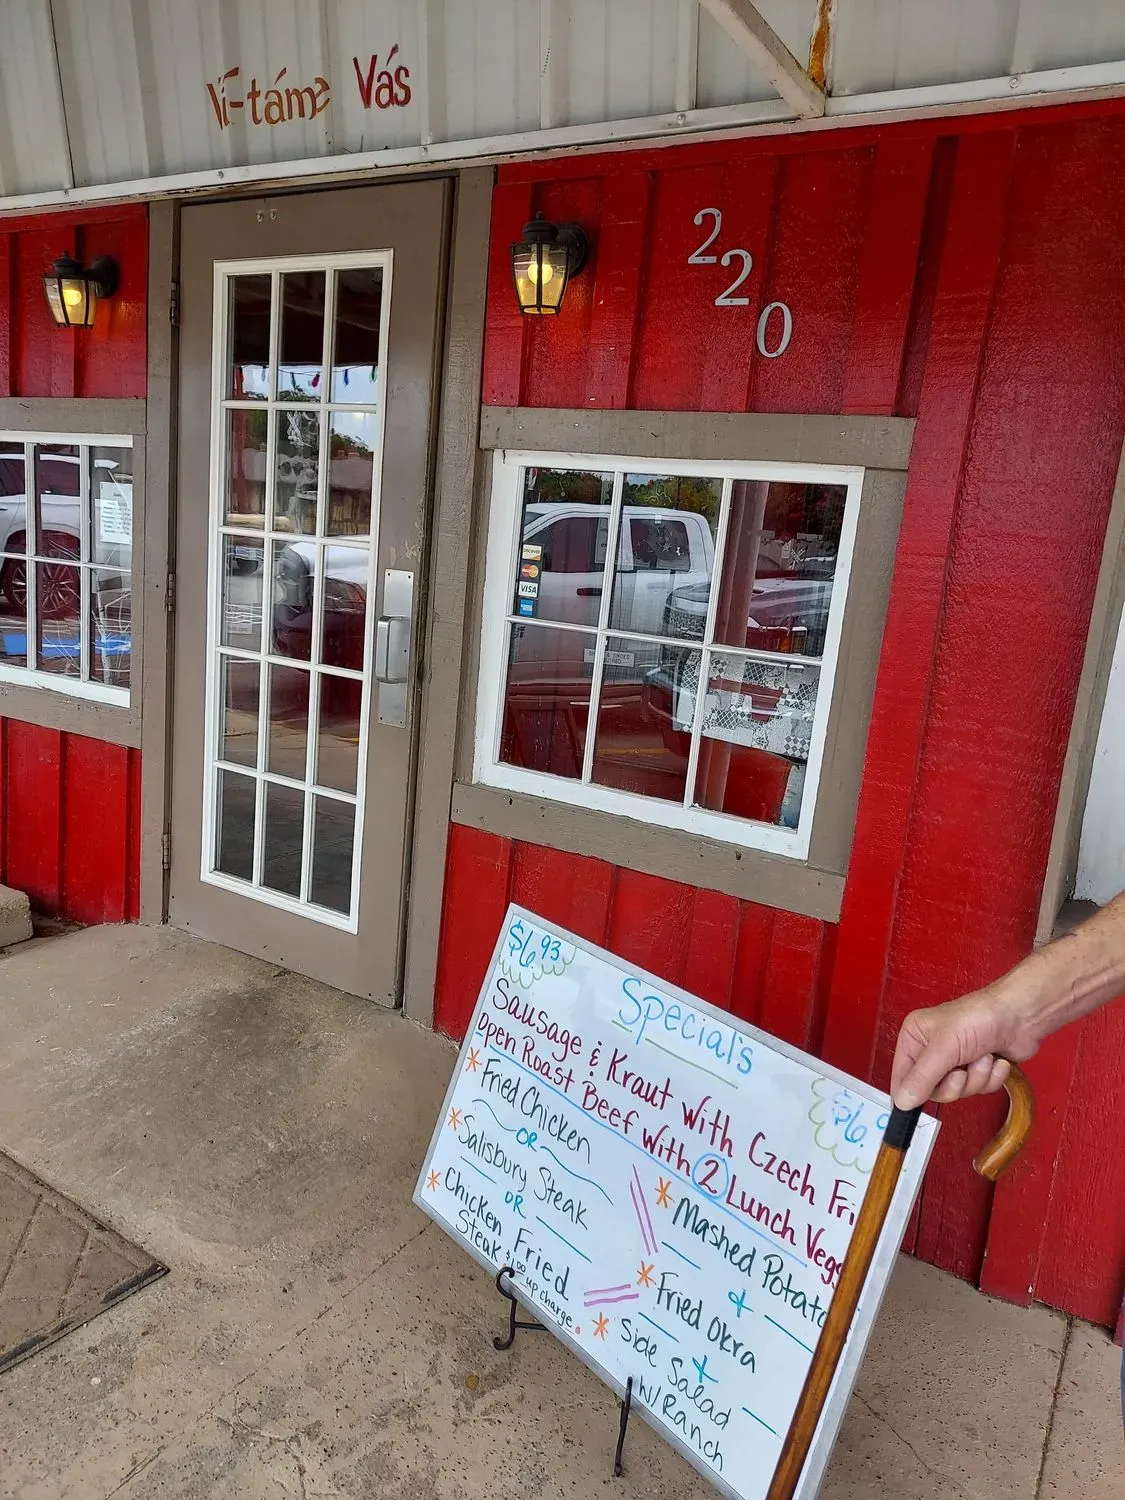 Ví-táme Vás
220
DISCOVER
MasterCard
VISA
& SHOES
$6.93
Special's
Sausage & Kraut with Czech Fri
Open Roast Beef with 2 Lunch Vegs
* Fried Chicken
OR
* Salisbury Steak
OR
* Chicken Fried
Steak $1.00 up charge.
* Mashed Potato
&
* Fried Okra
&
* Side Salad
w/Ranch
$6.9